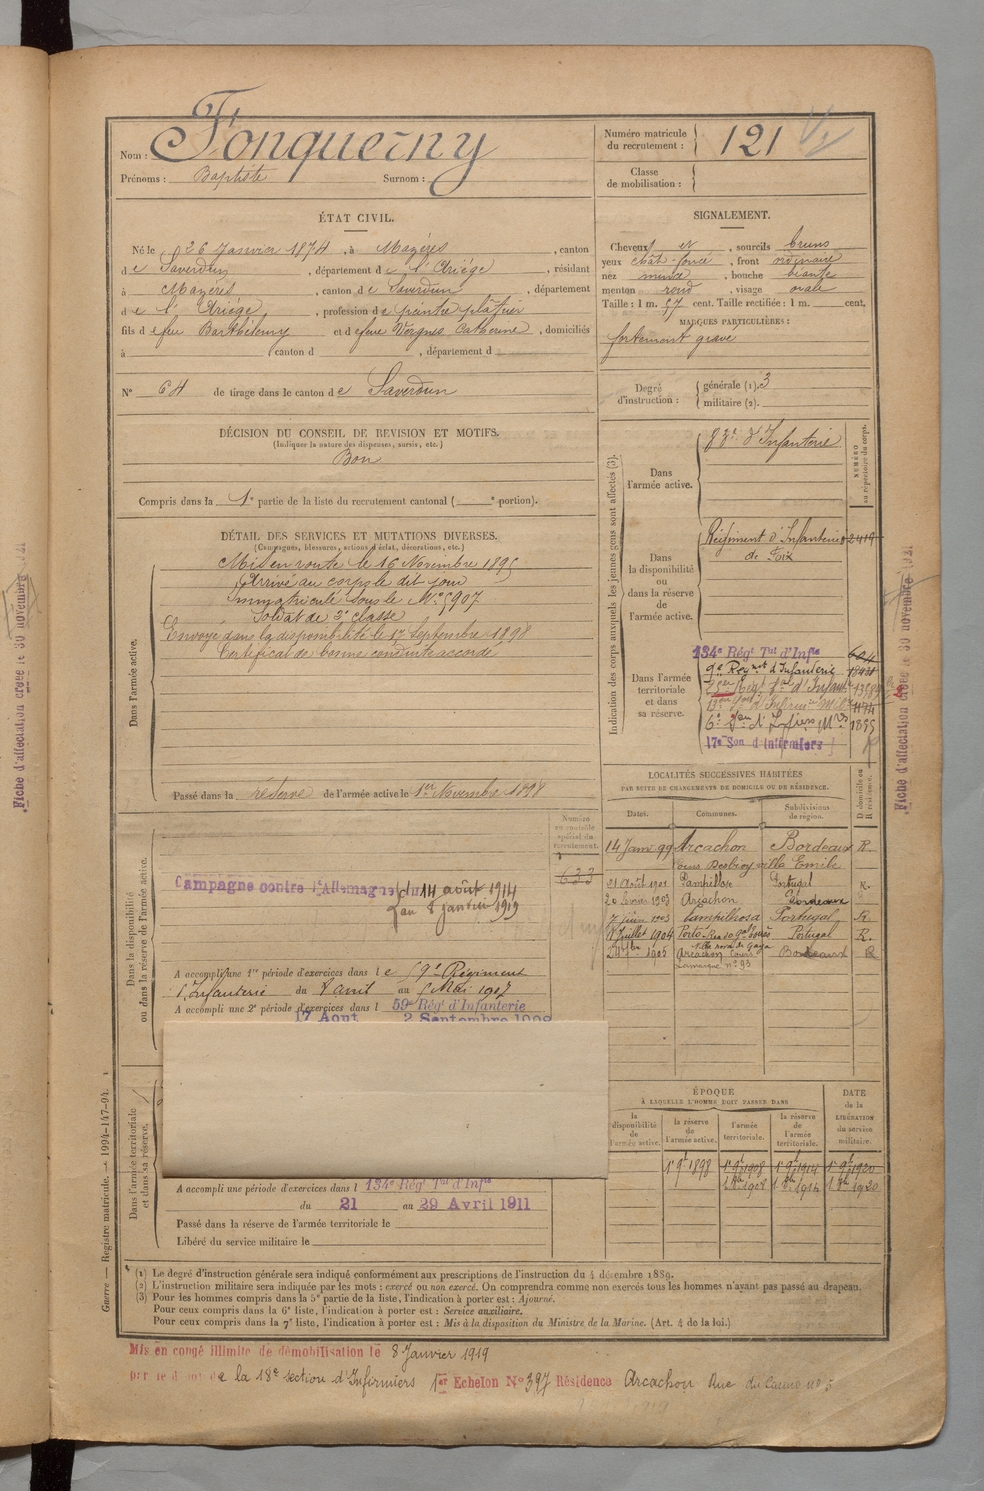 Nom : Fonquerny
Prénoms : Baptiste Surnom :
Numéro matricule du recrutement : 121
Classe de mobilisation :
ÉTAT CIVIL.
Né le 26 Janvier 1874, à Mazères, canton
de Saverdun, département de l'Ariége, résidant
à Mazères, canton de Saverdun, département
de l'Ariége, profession de peintre plâtrier
fils de feu Barthélemy et de feue Vergnes Catherine, domiciliés
à canton d , département d
N° 64 de tirage dans le canton de Saverdun
DÉCISION DU CONSEIL DE REVISION ET MOTIFS.
(Indiquer la nature des dispenses, sursis, etc.)
Bon
Compris dans la 1e partie de la liste du recrutement cantonal ( e portion).
SIGNALEMENT.
Cheveux et , sourcils bruns
yeux chât. foncé, front ordinaire
nez , bouche béante
menton rond, visage ovale
Taille : 1 m. 57 cent. Taille rectifiée : 1 m. cent.
MARQUES PARTICULIÈRES :
fortement gravé
Degré d'instruction : générale (1). 3
militaire (2).
DÉTAIL DES SERVICES ET MUTATIONS DIVERSES.
(Campagnes, blessures, actions d'éclat, décorations, etc.)
Dans l'armée active.
Mis en route le 16 Novembre 1895
Arrivé au corps le dit jour
Immatriculé sous le N° 5907
Soldat de 2e classe
Envoyé dans la disponibilité le 17 Septembre 1898
Certificat de bonne conduite accordé
Passé dans la réserve de l'armée active le 1er Novembre 1898
Indication des corps auxquels les jeunes gens sont affectés (3).
NUMÉRO au répertoire du corps.
Dans l'armée active.
d'Infanterie
Dans la disponibilité ou dans la réserve de l'armée active.
Régiment d'Infanterie 2419
de Foix
Dans l'armée territoriale et dans sa réserve.
134e Régt Tal d'Infie
9e d'Infanterie
1895
17e Son d'Infirmiers
Dans la disponibilité ou dans la réserve de l'armée active.
Numéro au contrôle spécial du recrutement.
633
Campagne contre l'Allemagne du 14 août 1914
au 8 janvier 1919
A accompli une 1re période d'exercices dans le 59e Régiment
d'Infanterie du 8 avril au 5 Mai 1907
A accompli une 2e période d'exercices dans l 59e Régt d'Infanterie
17 Aout 2 Septembre 1908
LOCALITÉS SUCCESSIVES HABITÉES
PAR SUITE DE CHANGEMENTS DE DOMICILE OU DE RÉSIDENCE.
Dates. Communes. Subdivisions de région. D domicile ou R résidence.
14 Janv 99 Arcachon Bordeaux R.
Cours Desbiey villa Emile
21 Août 1901 Pampilhosa Portugal R.
20 février 1903 Arcachon Bordeaux
7 juin 1903 Pampilhosa Portugal R.
Juillet 1904 Porto Portugal R.
1905 Arcachon Cours Bordeaux R
Lamarque n° 93
ÉPOQUE
À LAQUELLE L'HOMME DOIT PASSER DANS
la disponibilité de l'armée active. la réserve de l'armée active. l'armée territoriale. la réserve de l'armée territoriale.
DATE de la LIBÉRATION du service militaire.
1e 9t 1898 1e 9t 1908 1e 9t 1914 1e 9t 1920
Dans l'armée territoriale et dans sa réserve.
A accompli une période d'exercices dans l 134e Régt Tal d'Infie
du 21 au 29 Avril 1911
Passé dans la réserve de l'armée territoriale le
Libéré du service militaire le
(1) Le degré d'instruction générale sera indiqué conformément aux prescriptions de l'instruction du 4 décembre 1889.
(2) L'instruction militaire sera indiquée par les mots : exercé ou non exercé. On comprendra comme non exercés tous les hommes n'ayant pas passé au drapeau.
(3) Pour les hommes compris dans la 5e partie de la liste, l'indication à porter est : Ajourné.
Pour ceux compris dans la 6e liste, l'indication à porter est : Service auxiliaire.
Pour ceux compris dans la 7e liste, l'indication à porter est : Mis à la disposition du Ministre de la Marine. (Art. 4 de la loi.)
Mis en congé illimité de démobilisation le 8 Janvier 1919
par le dépôt de la 18e section d'Infirmiers 1er Echelon N° 397 Résidence Arcachon Rue du Casino n° 5
Guerre — Registre matricule. — 1994-147-94.
Fiche d'affectation créée le 30 novembre 1921
Fiche d'affectation créée le 30 novembre 1921